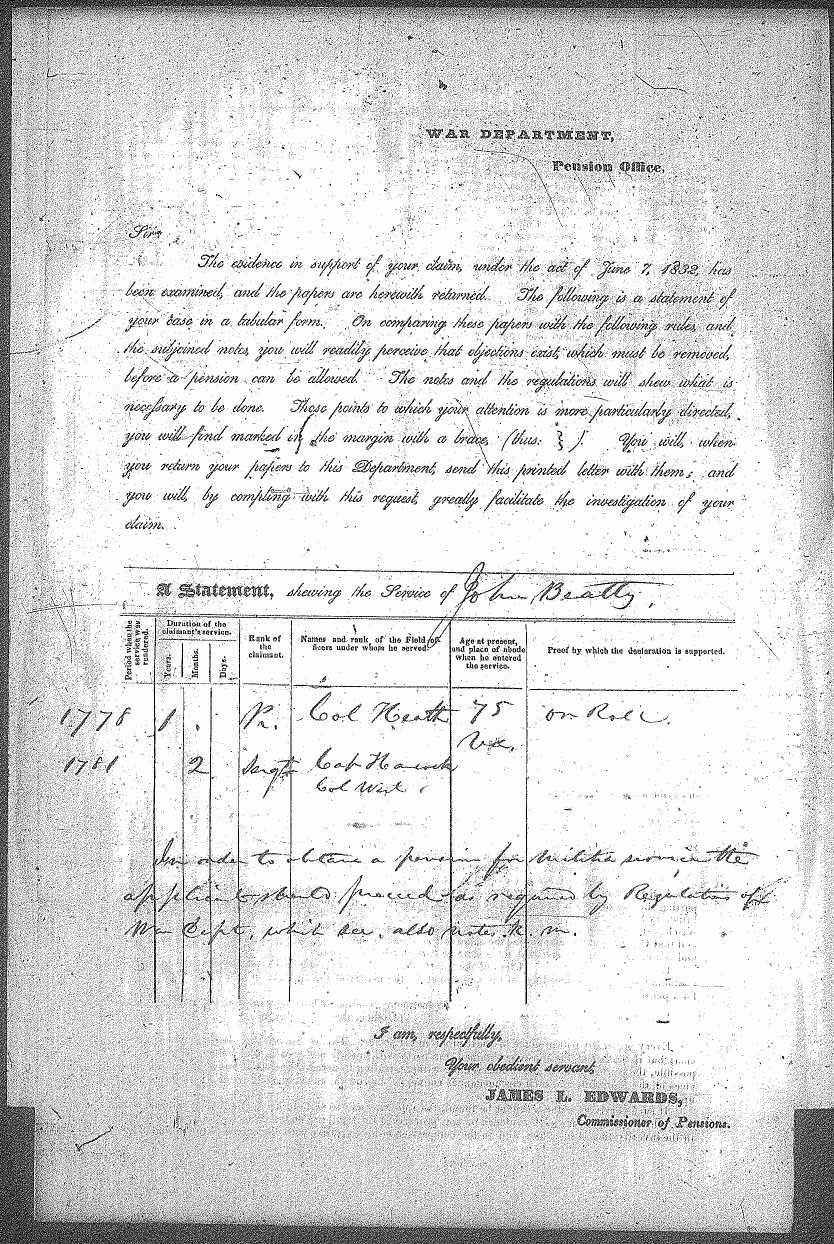 WAR DEPARTMENT,
Pension Office,
Sir,
The evidence in support of your claim, under the act of June 7, 1832, has
been examined, and the papers are herewith returned. The following is a statement of
your case in a tabular form. On comparing these papers with the following rules, and
the subjoined notes, you will readily perceive that objections exist, which must be removed,
before a pension can be allowed. The notes and the regulations will shew what is
necessary to be done. Those points to which your attention is more particularly directed,
you will find marked in the margin with a brace, (thus: } ). You will, when
you return your papers to this Department, send this printed letter with them; and
you will, by compling with this request, greatly facilitate the investigation of your
claim.
A Statement, shewing the Service of John Beatty.
Period when the service was rendered.
Duration of the claimant's service.
Years.
Months.
Days.
Rank of the claimant.
Names and rank of the Field officers under whom he served.
Age at present, and place of abode when he entered the service.
Proof by which the declaration is supported.
1778 1 . Pr. Col Heath 75 on Roll.
Va.
1781 2 Sargt Cap Hancock
Col West
In order to obtain a pension for militia service the
applicant should proceed as required by Regulations of
War Dept, which see, also notes. k. m.
I am, respectfully,
Your obedient servant,
JAMES L. EDWARDS,
Commissioner of Pensions.